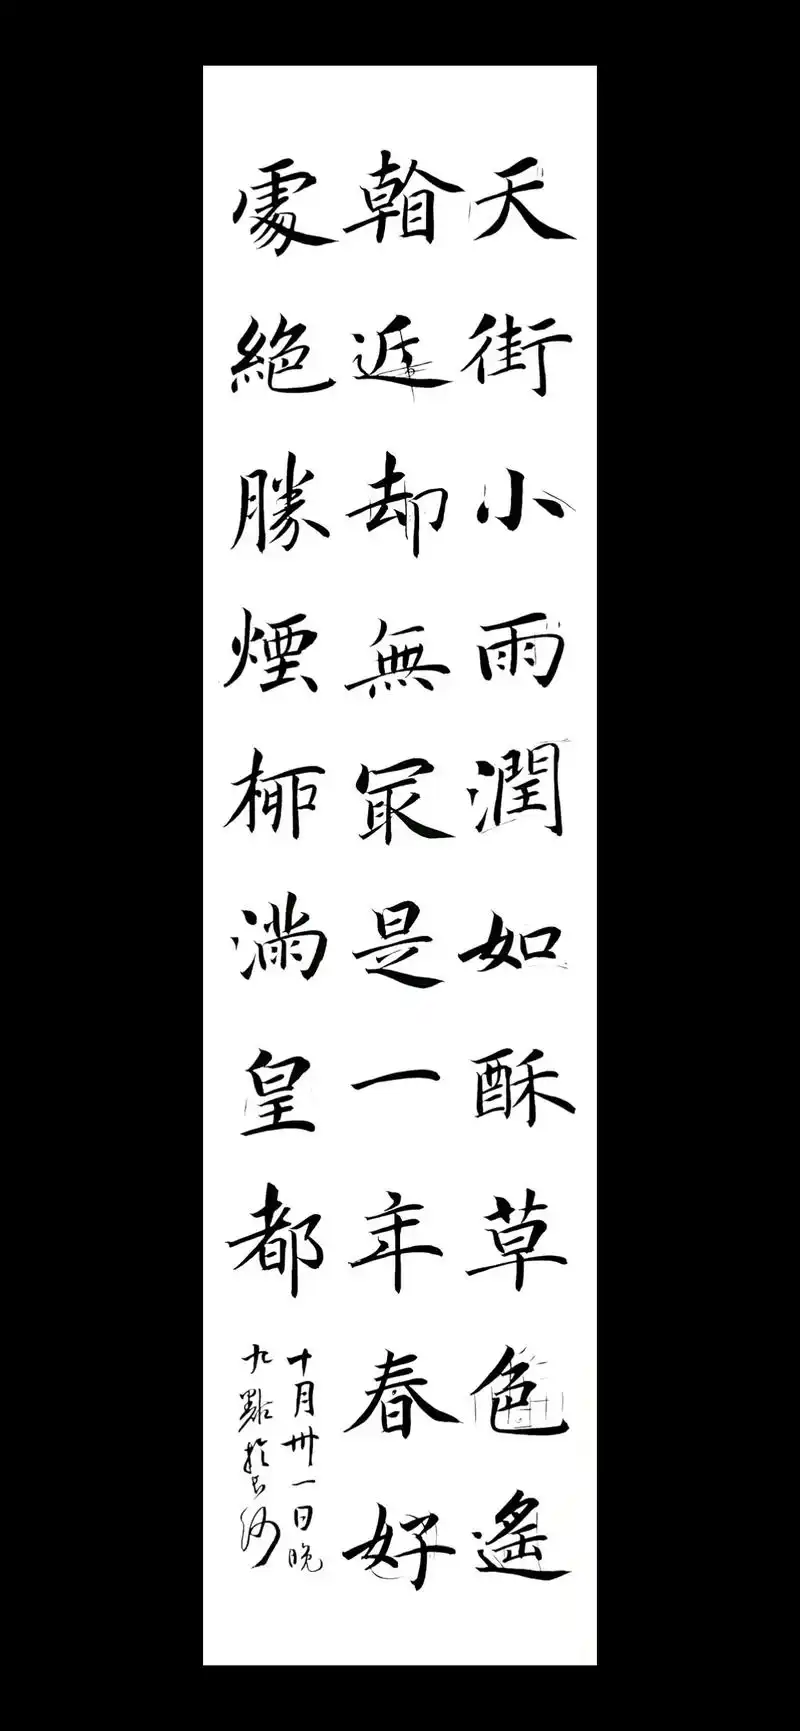 天街小雨潤如酥草色遙
看近却無最是一年春好
處絕勝煙柳滿皇都
十月卅一日晚
九點於長沙